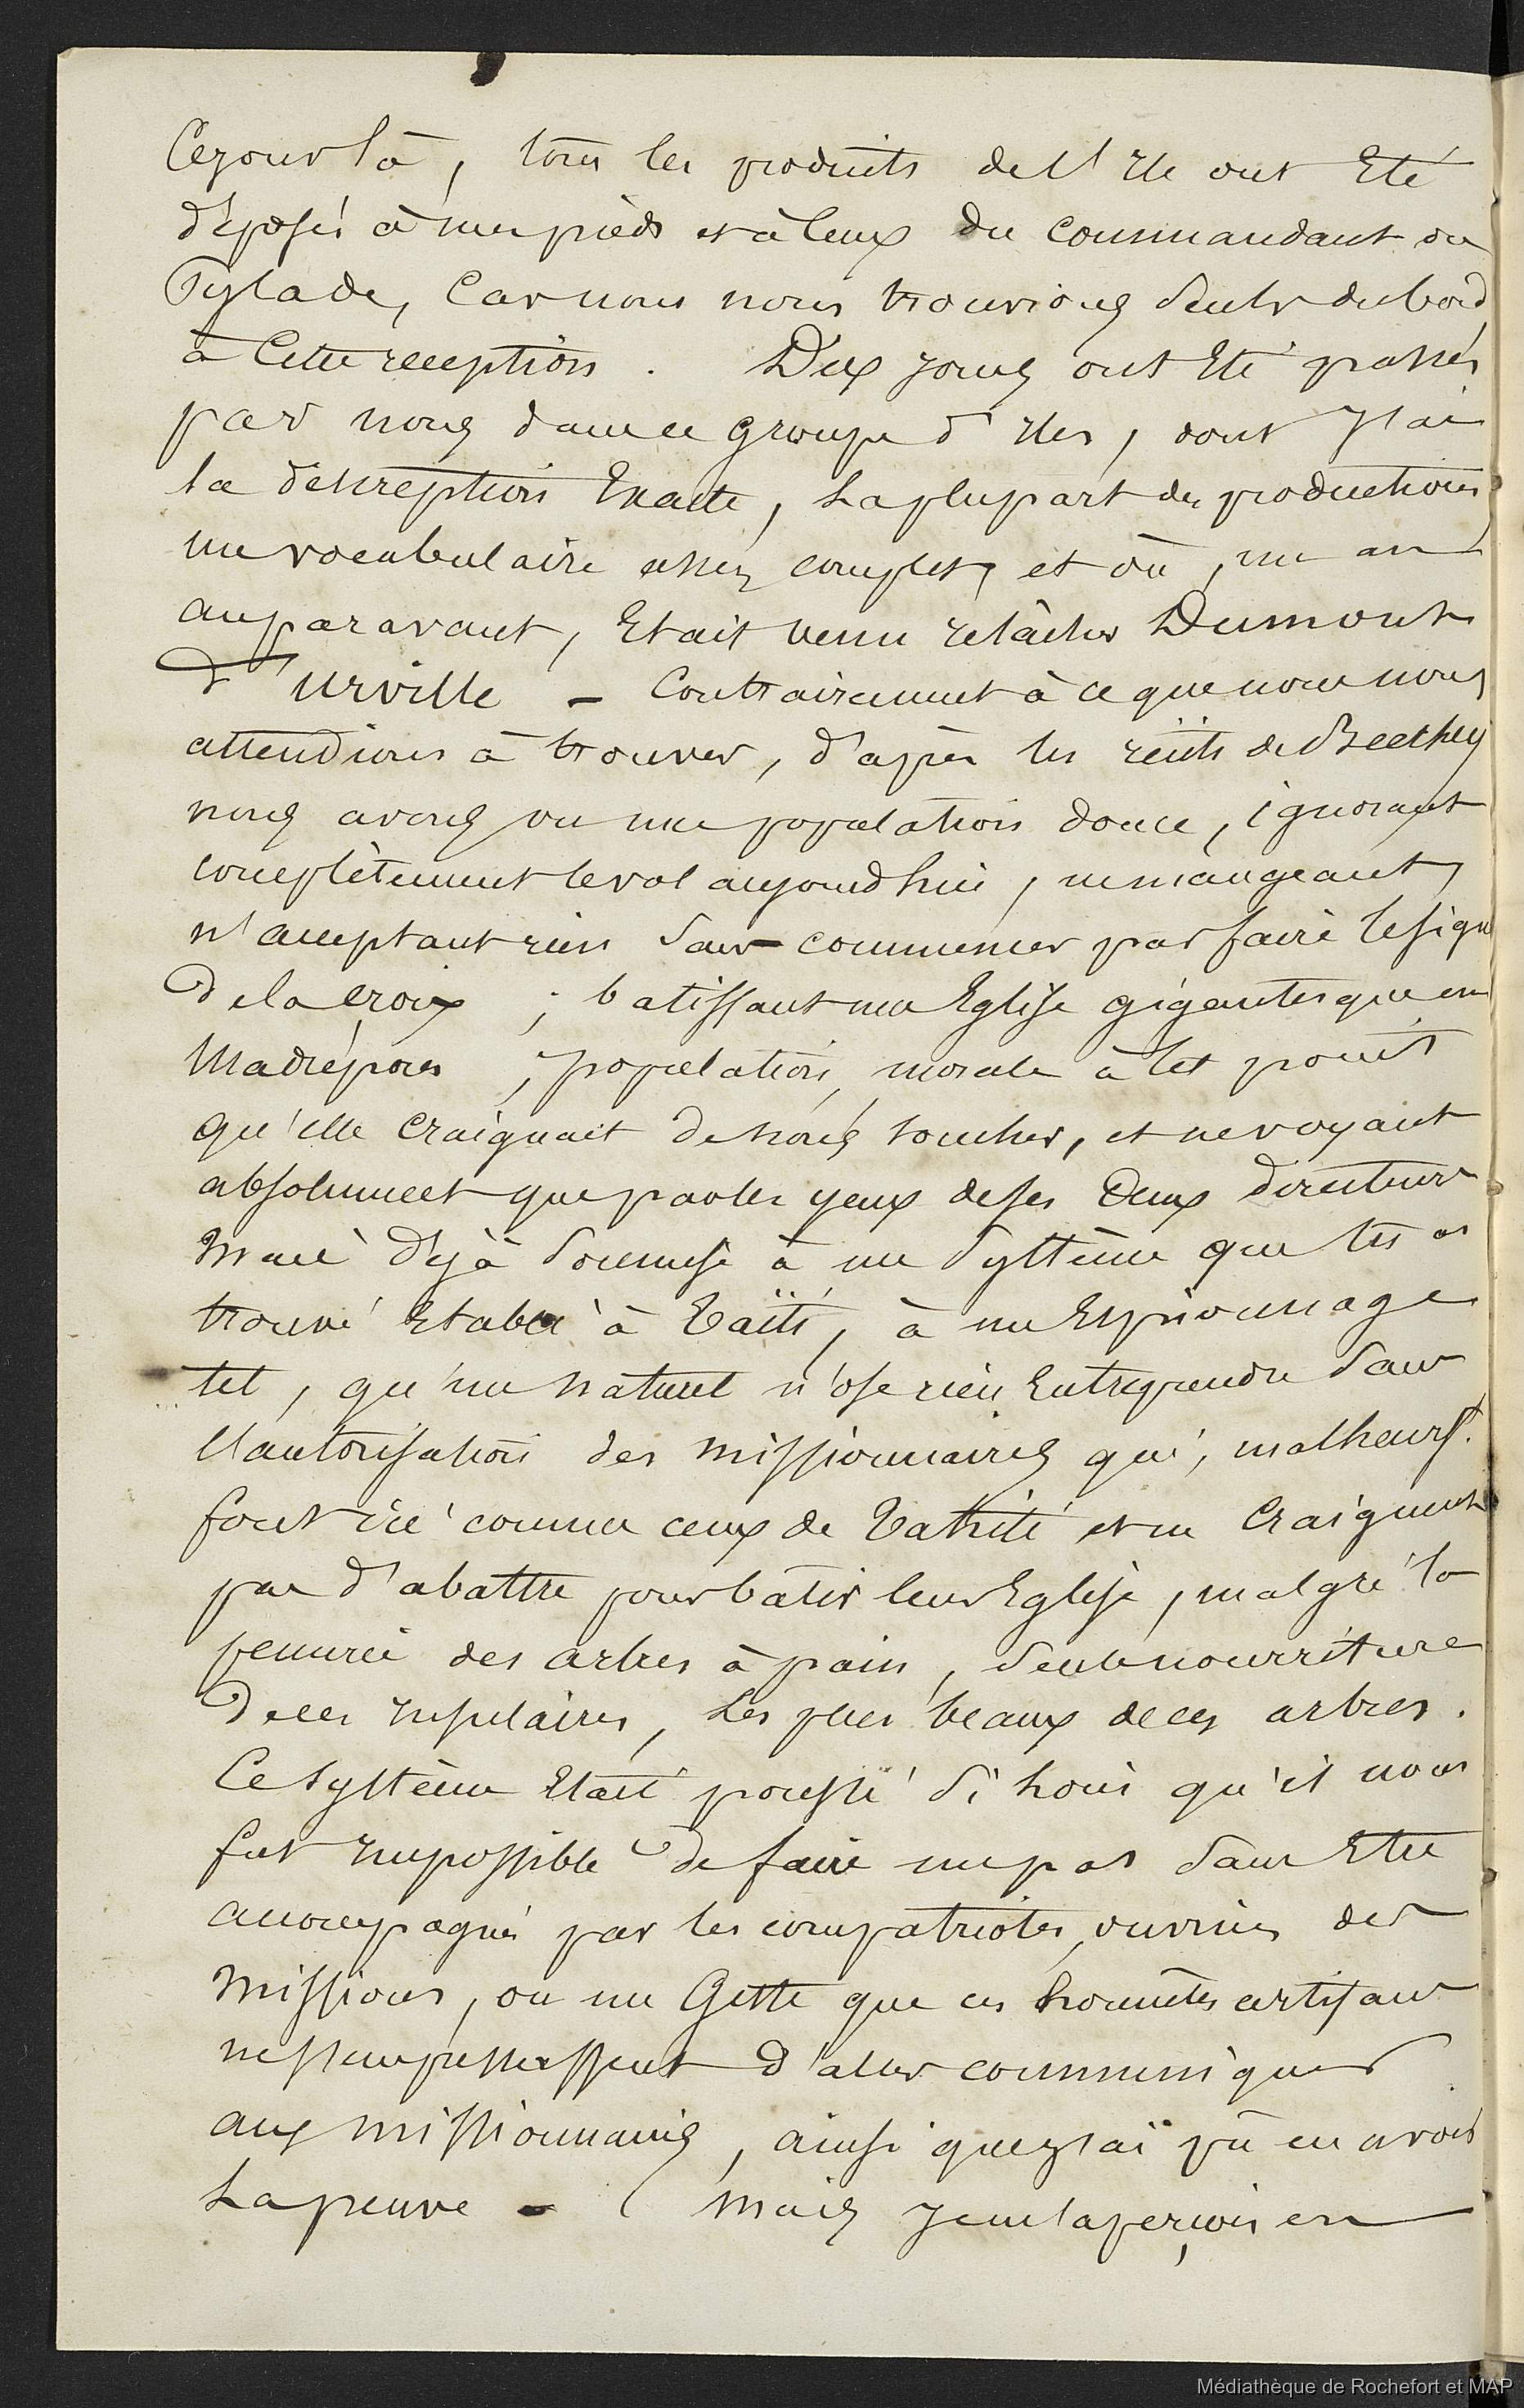 Ce jour là, tous les produits de l'Ile ont Eté
déposés à mes pieds et à ceux du Commandant du
Pylade, Car nous nous trouvions Seuls du bord
à Cette reception. Dix jours ont Eté passés
par nous dans ce groupe d'Iles, dont J'ai
la déscreption Exacte, La plupart des productions
un vocabulaire assez complet, et où, un an
auparavant, Etait venu relâcher Dumont
d'Urville - Contrairement à ce que nous nous
attendions à trouver, d'après les récits de Beechey
nous avons vu une population douce, ignorant
complètement le vol aujourd'hui, ne mangeant,
n'acceptant rien Sans commencer par faire le sign
de la croix; batissant une Eglise gigantesque en
Madrépores, population, morale à tel point
qu'elle Craignait de nous toucher, et ne voyant
absolument que par les yeux de ses Deux Directeurs
Mais déjà Soumise à un Système que tu as
trouvé Etabli à Taïti, à un Espionnage
tel, qu'un naturel n'ose rien Entreprendre Sans
l'autorisation des Missionnaires qui, malheurst.
font ici comme ceux de Tahiti et ne Craignent
pas d'abattre pour bâtir leur Eglise, malgré la
penurie des arbres à pain, Seule nourriture
de ces Insulaires, Les plus beaux de ces arbres.
Ce Système Etait poussé Si loin qu'il nous
fut Impossible de faire un pas Sans Etre
accompagnés par les compatriotes, ouvriers des
Missions, ou un Geste que ces honnêtes artisans
ne s'empressassent d'aller communiquer
aux Missionnaires, ainsi que J'ai pû en avoir
La preuve - Mais Je m'aperçois en